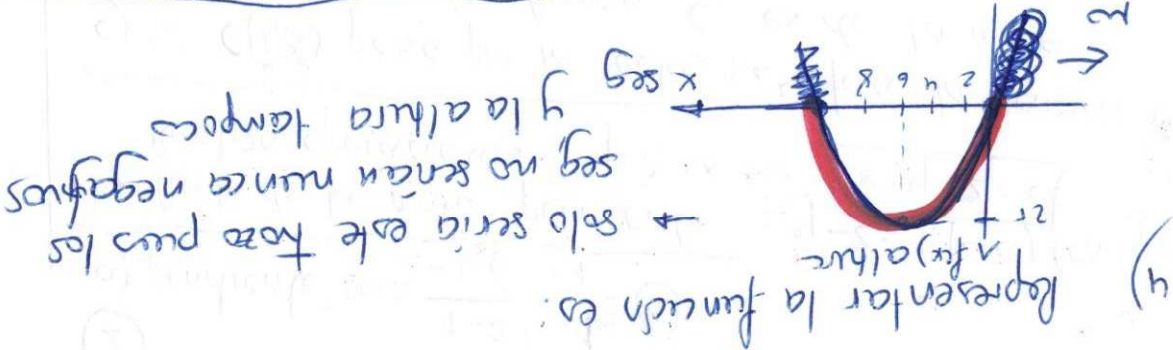 4) Representar la función es:
f(x) altura
→ solo sería este trozo pues los
seg no serán nunca negativos
y la altura tampoco
2 4 6 8
x seg
no